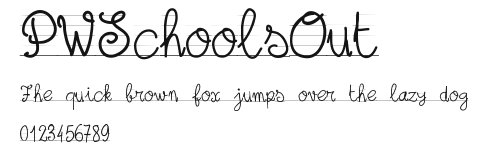 PWSchoolsOut
The quick brown fox jumps over the lazy dog
0123456789